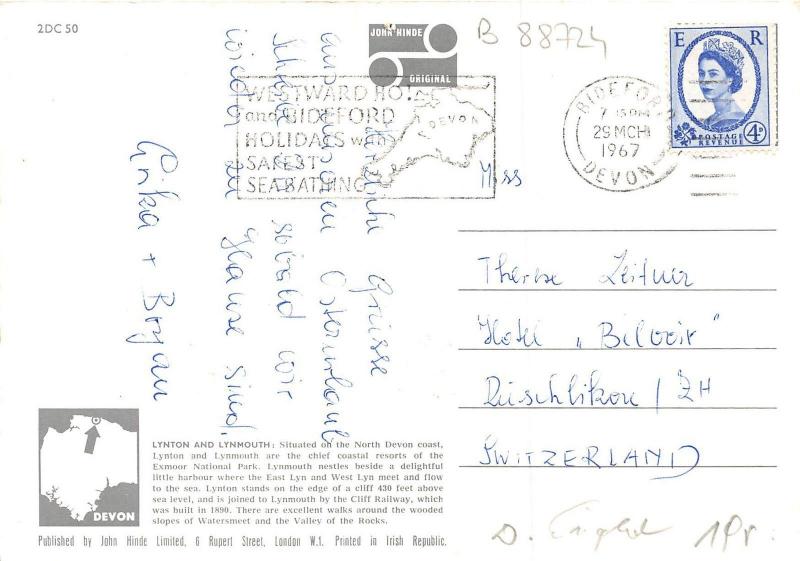 2DC 50
JOHN HINDE
ORIGINAL
B 88724
WESTWARD HO!
and BIDEFORD
HOLIDAYS with
SAFEST
SEA BATHING
DEVON
BIDEFORD
7 15 PM
29 MCH
1967
DEVON
E R
POSTAGE
REVENUE
4D
Herzliche Grüsse
aus unserem Osterurlaub
sobald wir
wieder zu Hause sind.
Erika + Bryan
Miss
Therese Zeitner
Hotel „Belvoir"
Rüschlikon / ZH
SWITZERLAND
DEVON
LYNTON AND LYNMOUTH: Situated on the North Devon coast,
Lynton and Lynmouth are the chief coastal resorts of the
Exmoor National Park. Lynmouth nestles beside a delightful
little harbour where the East Lyn and West Lyn meet and flow
to the sea. Lynton stands on the edge of a cliff 430 feet above
sea level, and is joined to Lynmouth by the Cliff Railway, which
was built in 1890. There are excellent walks around the wooded
slopes of Watersmeet and the Valley of the Rocks.
Published by John Hinde Limited, 6 Rupert Street, London W.1. Printed in Irish Republic.